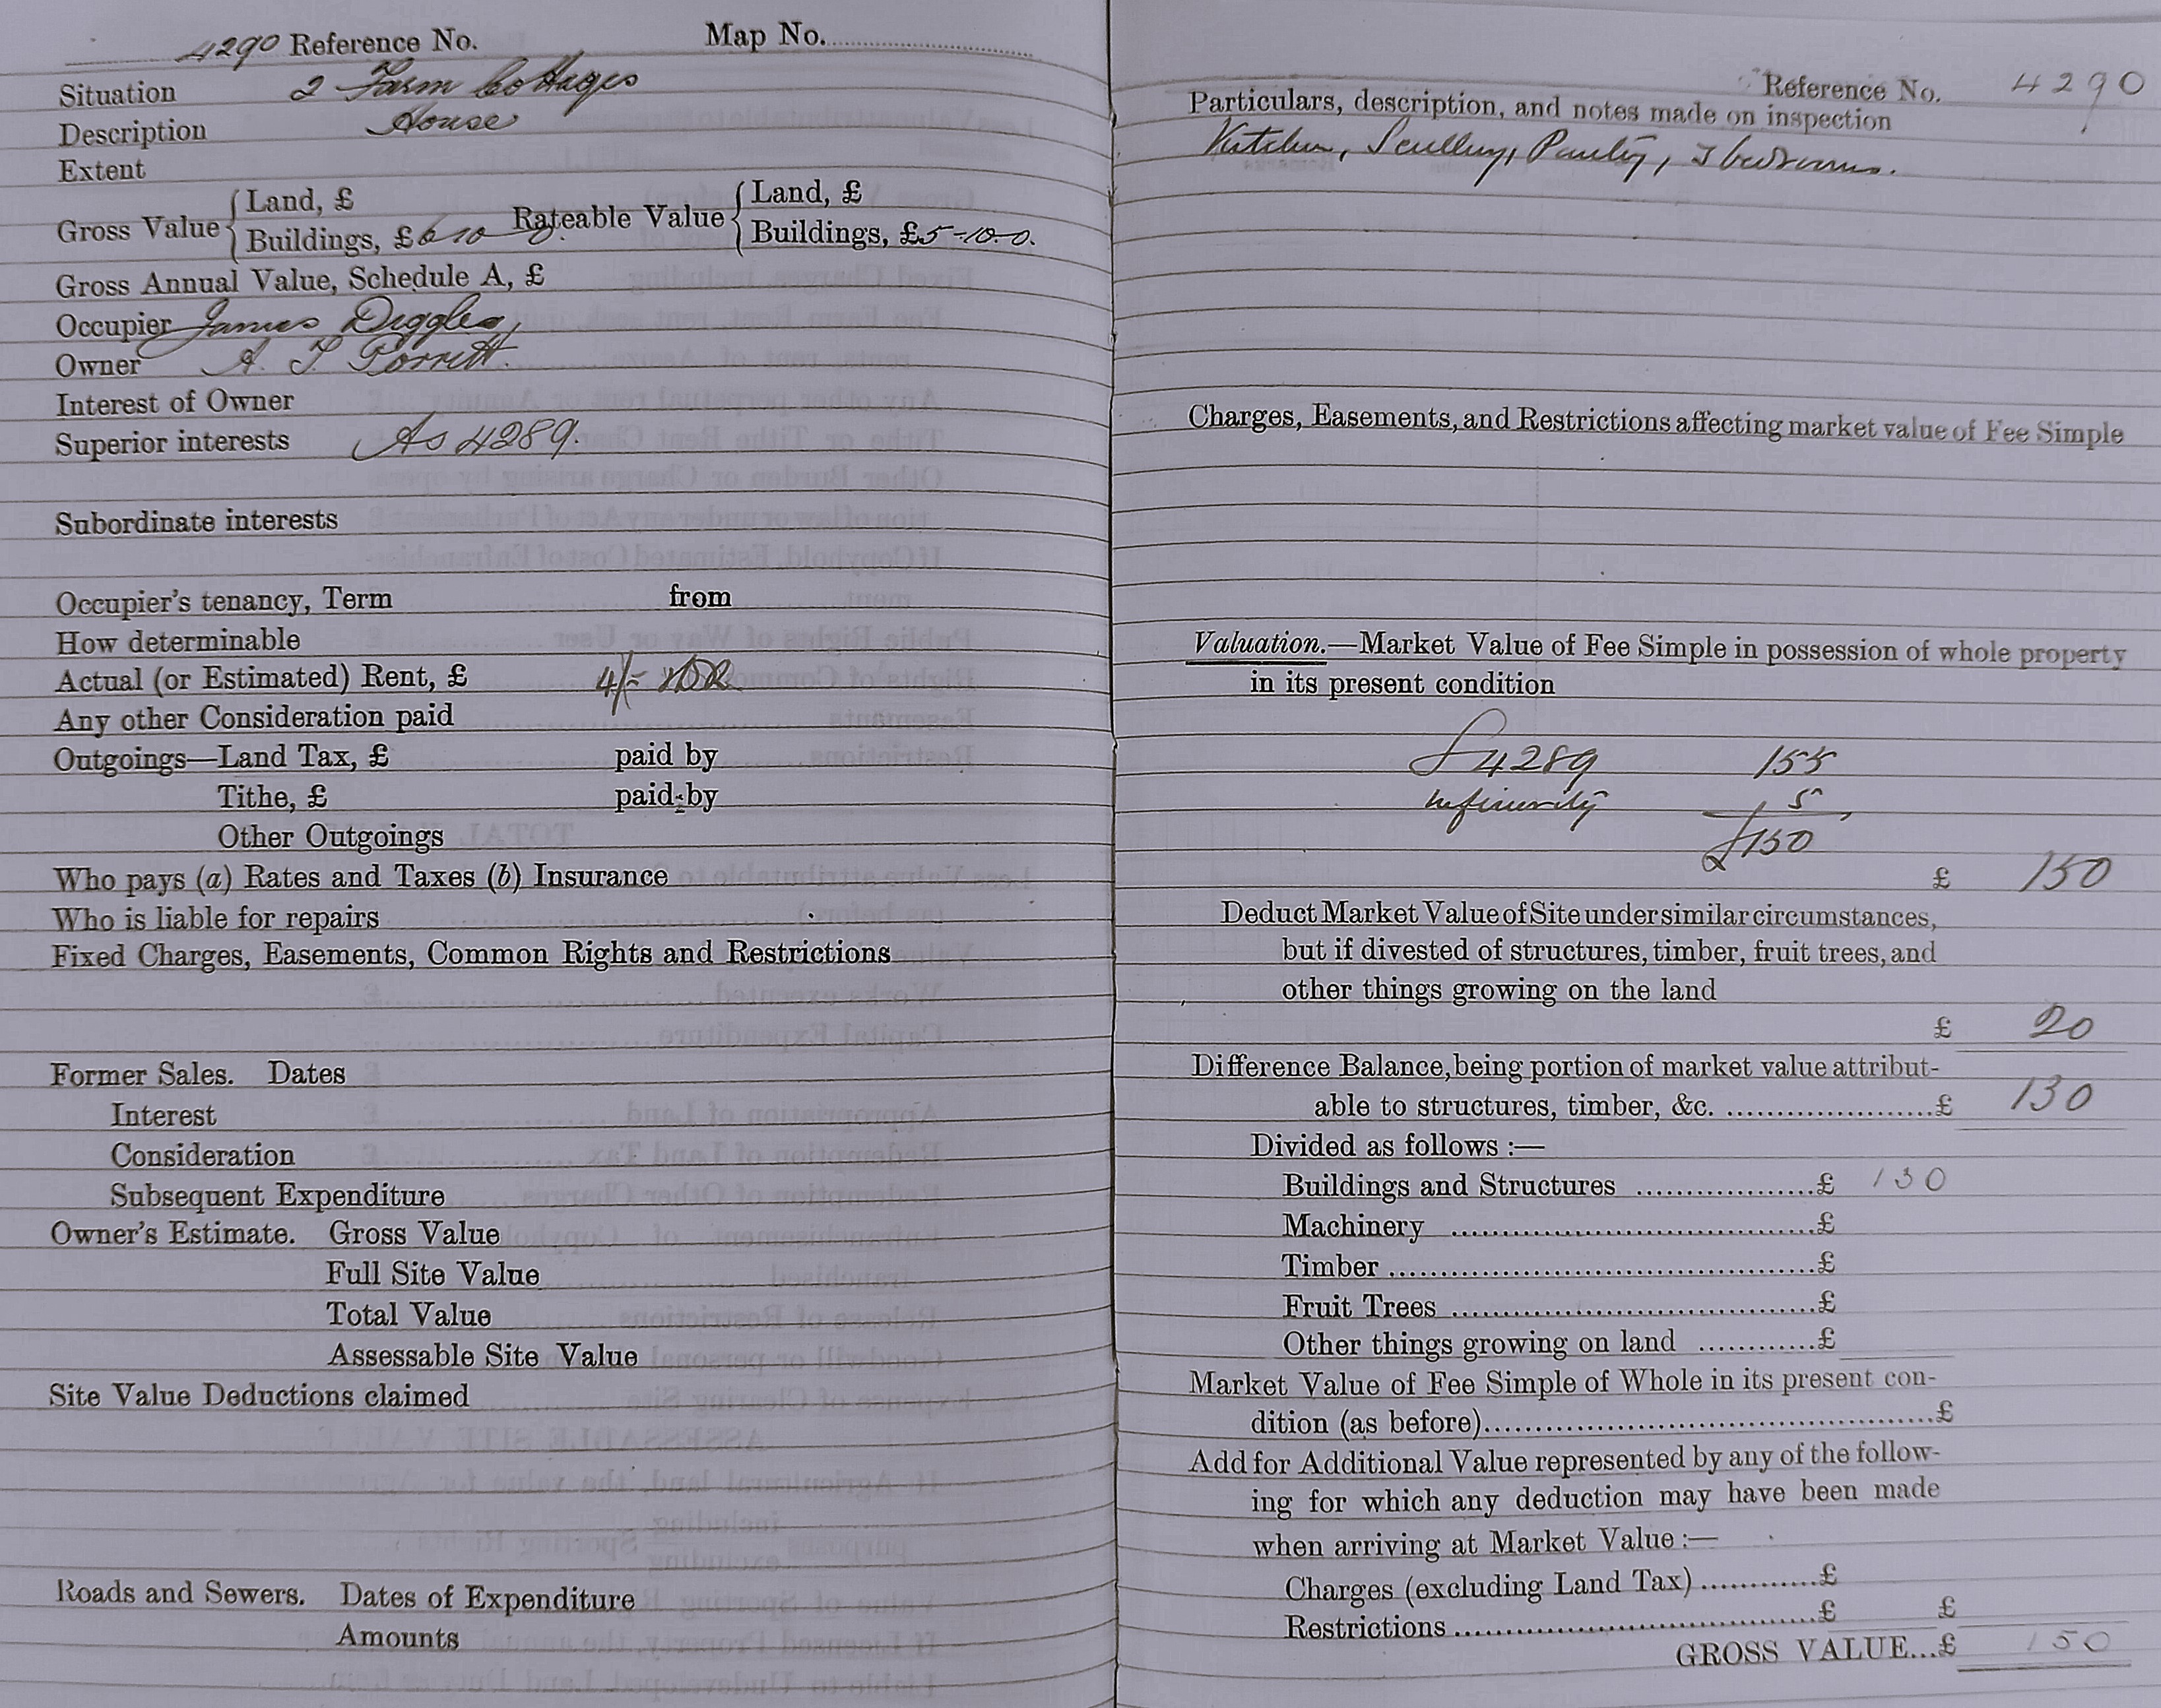 4290 Reference No. Map No.
Situation 2 Farm Cottages
Description House
Extent
Gross Value { Land, £
Buildings, £6 10 0. Rateable Value { Land, £
Buildings, £5-10-0.
Gross Annual Value, Schedule A, £
Occupier James Diggles,
Owner A. T. Porritt.
Interest of Owner
Superior interests As 4289.
Subordinate interests
Occupier's tenancy, Term from
How determinable
Actual (or Estimated) Rent, £ 4/-
Any other Consideration paid
Outgoings—Land Tax, £ paid by
Tithe, £ paid by
Other Outgoings
Who pays (a) Rates and Taxes (b) Insurance
Who is liable for repairs
Fixed Charges, Easements, Common Rights and Restrictions
Former Sales. Dates
Interest
Consideration
Subsequent Expenditure
Owner's Estimate. Gross Value
Full Site Value
Total Value
Assessable Site Value
Site Value Deductions claimed
Roads and Sewers. Dates of Expenditure
Amounts
Reference No. 4290
Particulars, description, and notes made on inspection
Kitchen, Scullery, Pantry, 3 bedrooms.
Charges, Easements, and Restrictions affecting market value of Fee Simple
Valuation.—Market Value of Fee Simple in possession of whole property
in its present condition
4289 155
inferiority 5
£150
£ 150
Deduct Market Value of Site under similar circumstances,
but if divested of structures, timber, fruit trees, and
other things growing on the land
£ 20
Difference Balance, being portion of market value attribut-
able to structures, timber, &c. ....................£ 130
Divided as follows :—
Buildings and Structures ..................£ 130
Machinery ....................................£
Timber ..........................................£
Fruit Trees ....................................£
Other things growing on land ............£
Market Value of Fee Simple of Whole in its present con-
dition (as before)............................................£
Add for Additional Value represented by any of the follow-
ing for which any deduction may have been made
when arriving at Market Value :—
Charges (excluding Land Tax)............£
Restrictions....................................£ £
GROSS VALUE...£ 150